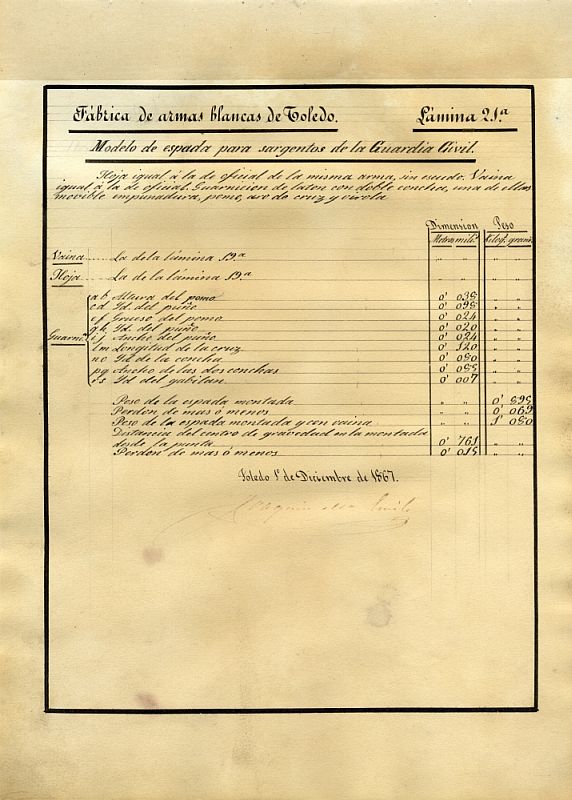 Fábrica de armas blancas de Toledo. Lámina 21.ª
Modelo de espada para sargentos de la Guardia Civil.
Hoja igual á la de oficial de la misma arma, sin escudo. Vaina
igual á la de oficial. Guarnicion de laton con doble concha, una de ellas
movible empuñadura, pomo, aro de cruz y virola
Dimension Peso
Metros mil.s Kilog. gram.s
Vaina La de la lámina 19.ª " " " "
Hoja La de la lámina 19.ª " " " "
Guarni.n
a b Altura del pomo 0' 035 " "
c d Id. del puño 0' 095 " "
e f Grueso del pomo 0' 024 " "
g h Id. del puño 0' 020 " "
i j Ancho del puño 0' 024 " "
l m Longitud de la cruz 0' 120 " "
n o Id de la concha 0' 080 " "
p q Ancho de las dos conchas 0' 085 " "
r s Id del gabilan 0' 007 " "
Peso de la espada montada " " 0' 895
Perdon de mas ó menos " " 0' 069
Peso de la espada montada y con vaina " " 1' 080
Distancia del centro de gravedad en la montada
desde la punta 0' 761 " "
Perdon de mas ó menos 0' 015 " "
Toledo 1.º de Diciembre de 1867.
Joaquin